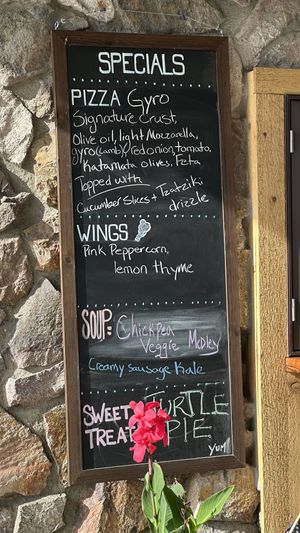 SPECIALS
PIZZA Gyro
Signature Crust,
Olive oil, light Mozzarella,
gyro (lamb), red onion, tomato,
Kalamata olives, Feta
Topped with
Cucumber Slices + Tzatziki
drizzle
WINGS
Pink Peppercorn,
lemon thyme
SOUP: Chickpea
Veggie Medley
Creamy Sausage Kale
SWEET TURTLE
TREAT PIE
YUM!